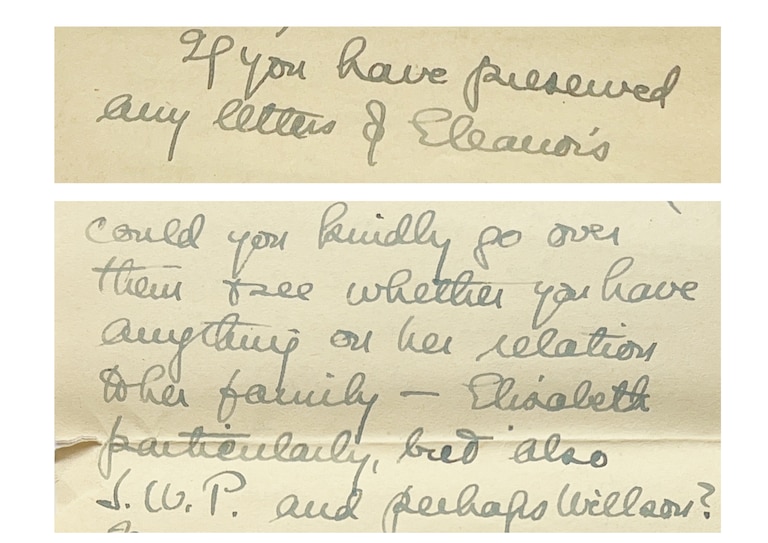 If you have preserved
any letters of Eleanor's
could you kindly go over
them & see whether you have
anything on her relation
to her family — Elisabeth
particularly, but also
J. W. P. and perhaps Willson?